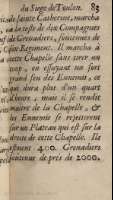 du Siege de Toulon. 83
de sainte Catherine, marcha
à la teste de dix Compagnies
de Grenadiers, soutenuës de
son Regiment. Il marcha à
cette Chapelle sans tirer un
coup, en essuyant un fort
grand feu des Ennemis, &
qui dura plus d'un quart
d'heure, mais il se rendit
maitre de la Chapelle, &
les Ennemis se rejetterent
sur un Plateau qui est sur la
droite de cette Chapelle. Ils
étoient 400. Grenadiers
soutenus de prés de 2000.